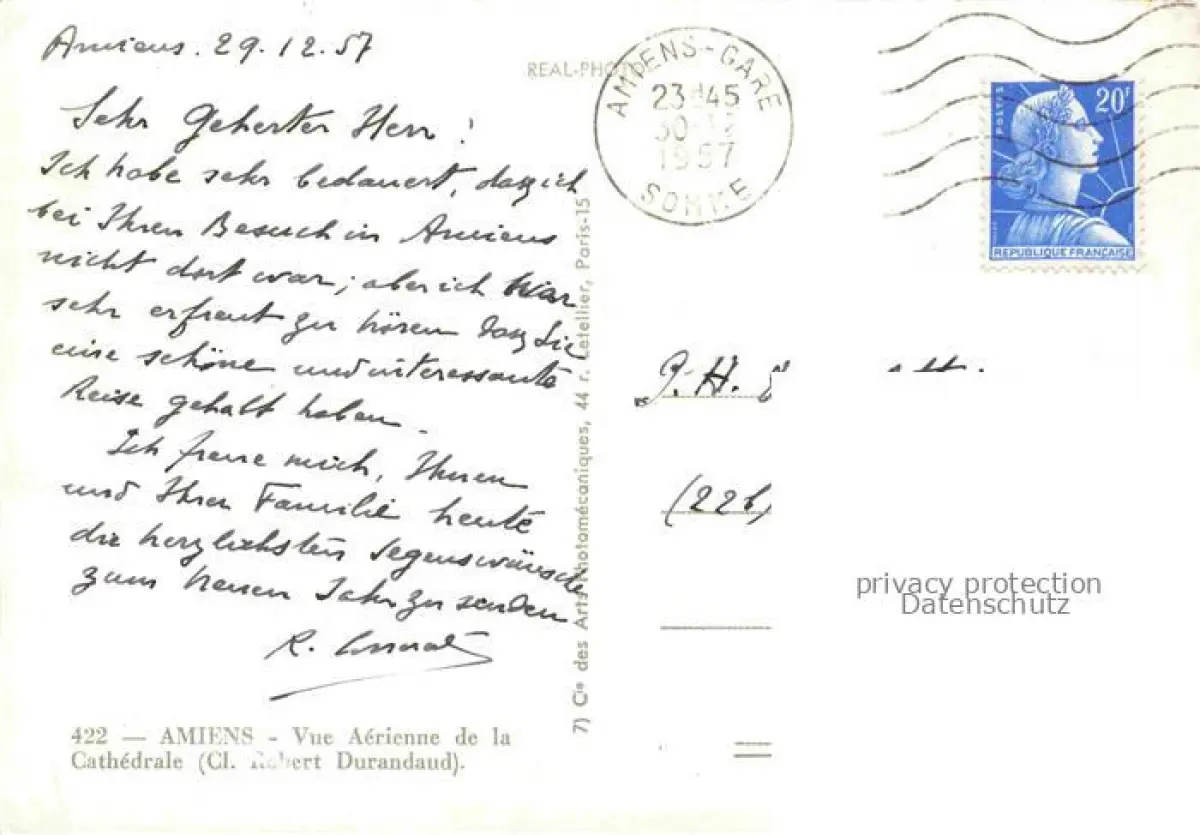 Amiens. 29.12.57
Sehr Geherter Herr!
Ich habe sehr bedauert, dasz ich
bei Ihren Besuch in Amiens
nicht dort war; aber ich war
sehr erfreut zu hören dasz Sie
eine schöne und interessante
Reise gehabt haben.
Ich freue mich, Ihnen
und Ihrer Familie heute
die herzlichsten Segenswünsche
zum neuen Jahr zu senden
R.
422 — AMIENS - Vue Aérienne de la
Cathédrale (Cl. Robert Durandaud).
REAL-PHOTO
7) Cie des Arts Photomécaniques, 44 r. Letellier, Paris-15
AMIENS-GARE
23H45
30-12
1957
SOMME
POSTES
20F
REPUBLIQUE FRANÇAISE
P. H.
(22b)
privacy protection
Datenschutz